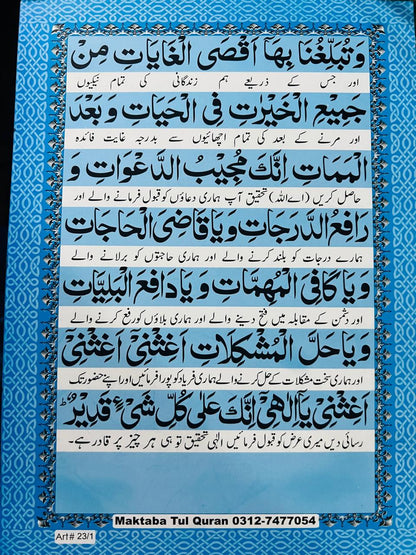 وَتُبَلِّغُنَا بِهَآ اَقْصَی الْغَایَاتِ مِنْ
اور جس کے ذریعے ہم زندگانی کی تمام نیکیوں
جَمِیْعِ الْخَیْرٰتِ فِی الْحَیَاتِ وَبَعْدَ
اور مرنے کے بعد کی تمام اچھائیوں سے بدرجہ غایت فائدہ
الْمَمَاتِ اِنَّكَ مُجِیْبُ الدَّعْوَاتِ وَ
حاصل کریں (اے اللہ) تحقیق آپ ہماری دعاؤں کو قبول فرمانے والے اور
رَافِعُ الدَّرَجَاتِ وَیَا قَاضِیَ الْحَاجَاتِ
ہمارے درجات کو بلند کرنے والے اور ہماری حاجتوں کو برلانے والے
وَیَا كَافِیَ الْمُهِمَّاتِ وَیَا دَافِعَ الْبَلِیَّاتِ
اور دشمن کے مقابلہ میں فتح دینے والے اور ہماری بلاؤں کو رفع کرنے والے
وَیَا حَلَّ الْمُشْكِلَاتِ اَغِثْنِیْ اَغِثْنِیْ
اور ہماری سخت مشکلات کے حل کرنے والے ہماری فریاد کو پورا فرمائیں اور اپنے حضور تک
اَغِثْنِیْ یَآ اِلٰهِیْ اِنَّكَ عَلٰی كُلِّ شَیْءٍ قَدِیْرٌ ؕ
رسائی دیں میری عرض کو قبول فرمائیں الٰہی تحقیق تو ہی ہر چیز پر قادر ہے۔
Maktaba Tul Quran 0312-7477054
Art# 23/1